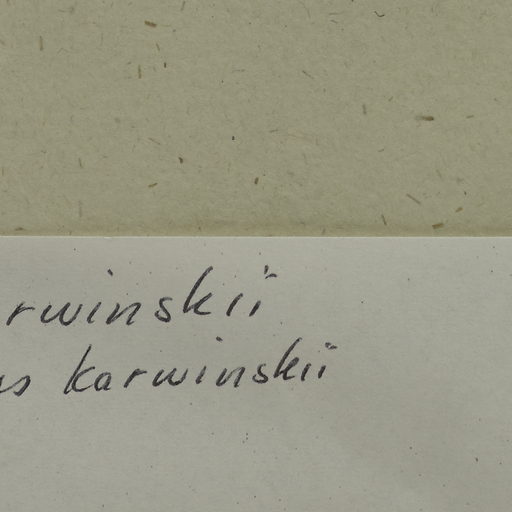 rwinskii
us karwinskii